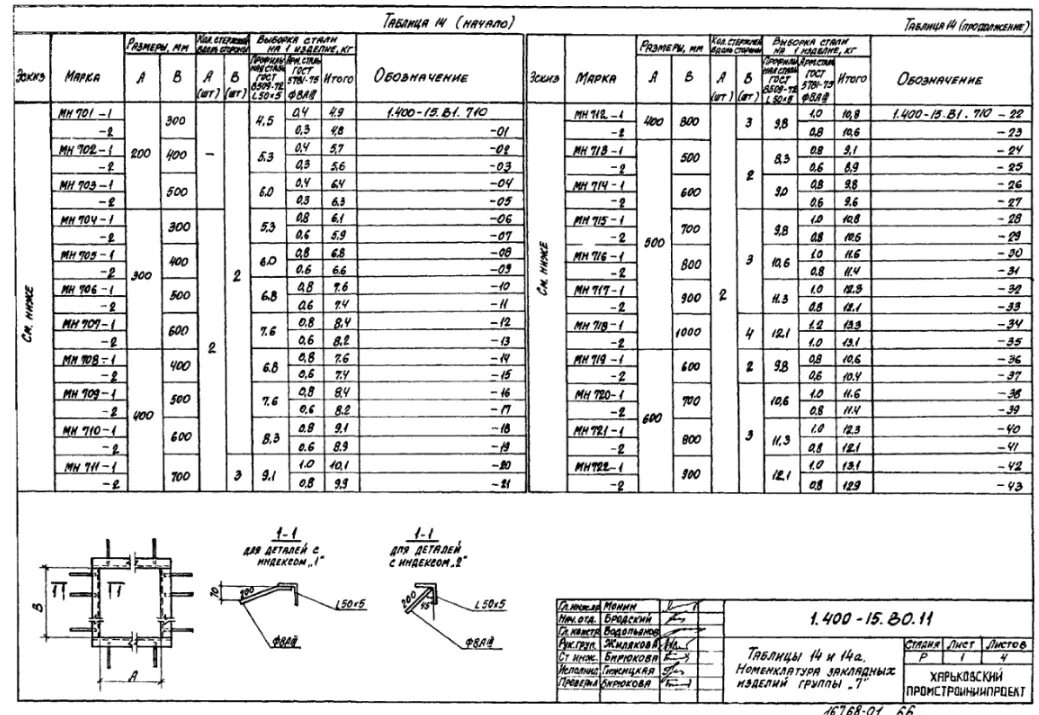 Таблица 14 (начало)
Эскиз Марка Размеры, мм Кол. стержней вдоль стороны Выборка стали на 1 изделие, кг Обозначение
А В А (шт) В (шт) Профильная сталь ГОСТ 8509-72 L50×5 Арм. сталь ГОСТ 5781-75 Ф8АI Итого
См. ниже
МН 701-1 200 300 — 4.5 0,4 4.9 1.400-15.В1.710
-2 0,3 4,8 -01
МН 702-1 400 5.3 0,4 5,7 -02
-2 0,3 5,6 -03
МН 703-1 500 6.0 0,4 6,4 -04
-2 0,3 6,3 -05
МН 704-1 300 300 2 2 5,3 0,8 6,1 -06
-2 0,6 5,9 -07
МН 705-1 400 6.0 0,8 6.8 -08
-2 0,6 6.6 -09
МН 706-1 500 6.8 0,8 7.6 -10
-2 0,6 7.4 -11
МН 707-1 600 7.6 0,8 8,4 -12
-2 0,6 8,2 -13
МН 708-1 400 400 6.8 0,8 7.6 -14
-2 0,6 7.4 -15
МН 709-1 500 7.6 0,8 8,4 -16
-2 0,6 8.2 -17
МН 710-1 600 8,3 0,8 9.1 -18
-2 0,6 8.9 -19
МН 711-1 700 3 9,1 1.0 10,1 -20
-2 0,8 9.9 -21
Таблица 14 (продолжение)
Эскиз Марка Размеры, мм Кол. стержней вдоль стороны Выборка стали на 1 изделие, кг Обозначение
А В А (шт) В (шт) Профильная сталь ГОСТ 8509-72 L50×5 Арм. сталь ГОСТ 5781-75 Ф8АI Итого
См. ниже
МН 712-1 400 800 2 3 9,8 1.0 10,8 1.400-15.В1.710-22
-2 0,8 10,6 -23
МН 713-1 500 500 2 8,3 0,8 9,1 -24
-2 0,6 8,9 -25
МН 714-1 600 9,0 0,8 9,8 -26
-2 0,6 9.6 -27
МН 715-1 700 3 9,8 1.0 10,8 -28
-2 0,8 10,6 -29
МН 716-1 800 10,6 1.0 11.6 -30
-2 0,8 11.4 -31
МН 717-1 900 11.3 1.0 12.3 -32
-2 0,8 12.1 -33
МН 718-1 1000 4 12.1 1.2 13.3 -34
-2 1.0 13.1 -35
МН 719-1 600 600 2 9,8 0,8 10,6 -36
-2 0,6 10.4 -37
МН 720-1 700 3 10,6 1.0 11.6 -38
-2 0,8 11.4 -39
МН 721-1 800 11.3 1.0 12.3 -40
-2 0,8 12.1 -41
МН 722-1 900 12.1 1.0 13.1 -42
-2 0,8 12.9 -43
1-1
для деталей с
индексом „1"
1-1
для деталей
с индексом „2"
В
А
1 1
70
200
L50×5
Ф8АI
200
45
L50×5
Ф8АI
Гл.инж.пр Монин
Нач.отд. Бродский
Гл.констр Водопьянов
Рук.груп. Жилякова
Ст инж. Бирюкова
Исполнил
Проверил Бирюкова
1.400-15.В0.11
Таблицы 14 и 14а.
Номенклатура закладных
изделий группы „7"
Стадия Лист Листов
Р 1 4
Харьковский
Промстройниипроект
16768-01 66